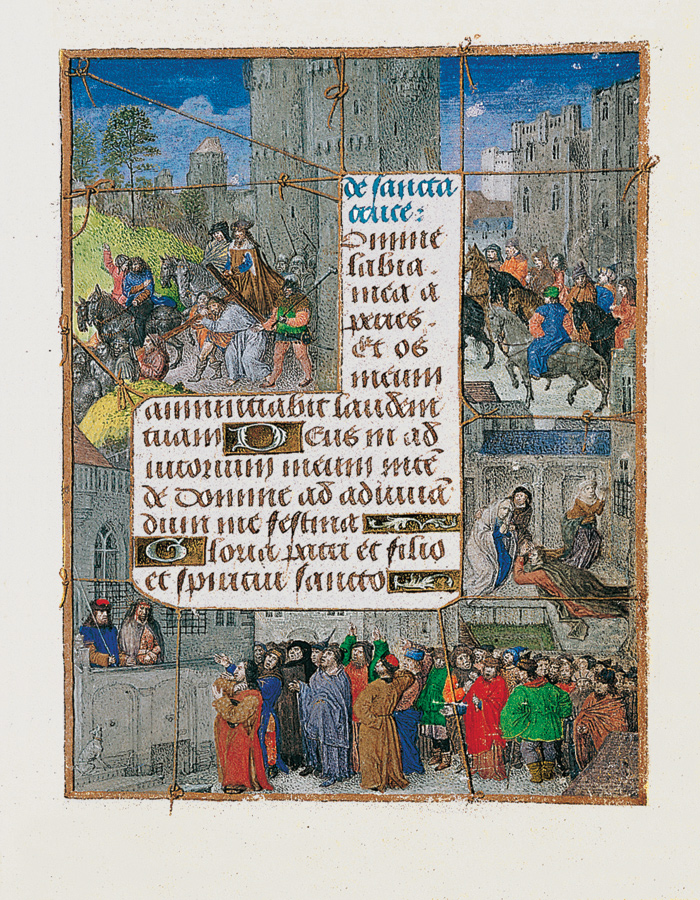 de sancta
cruce:
Domine
labia.
mea a
peries.
Et os
meum
annuntiabit laudem
tuam Deus in ad
iutorium meum intē
de Domine ad adiuuā
dum me festina
Gloria patri et filio
et spiritui sancto